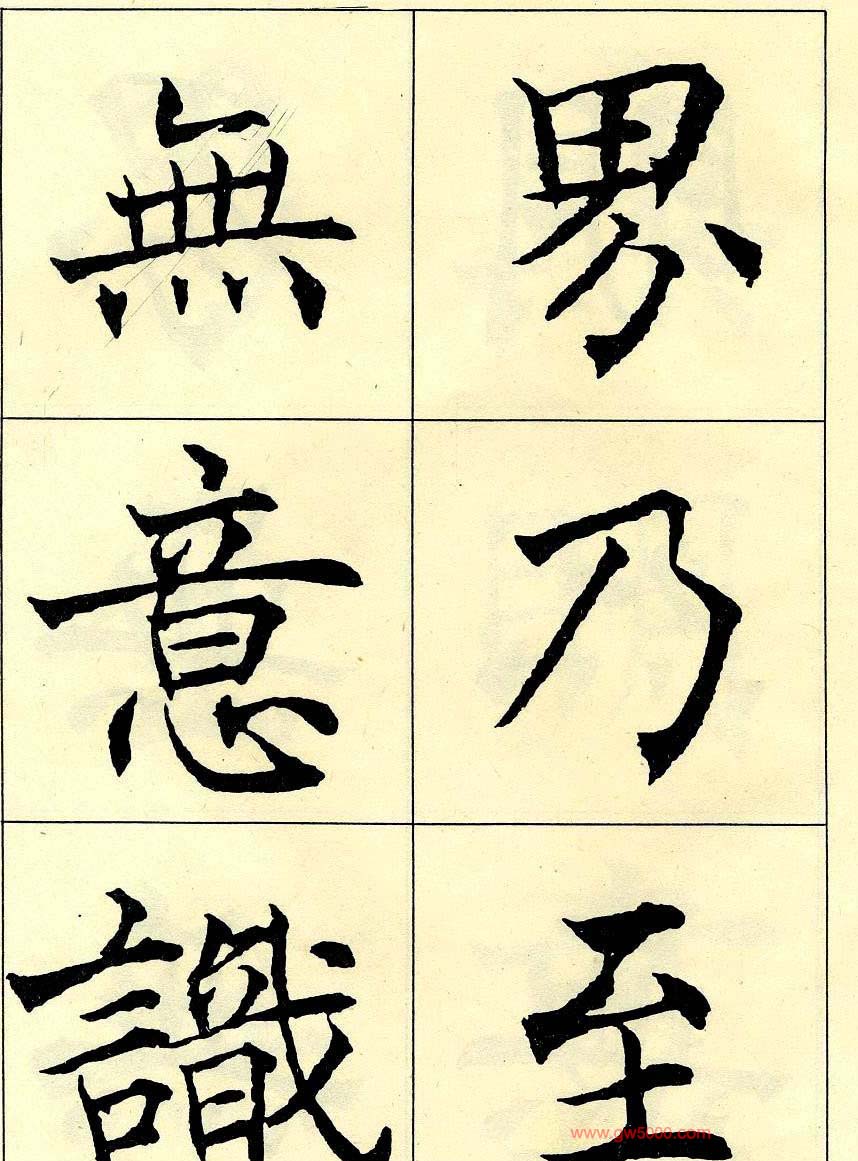 界乃至
無意識
www.gw5000.com